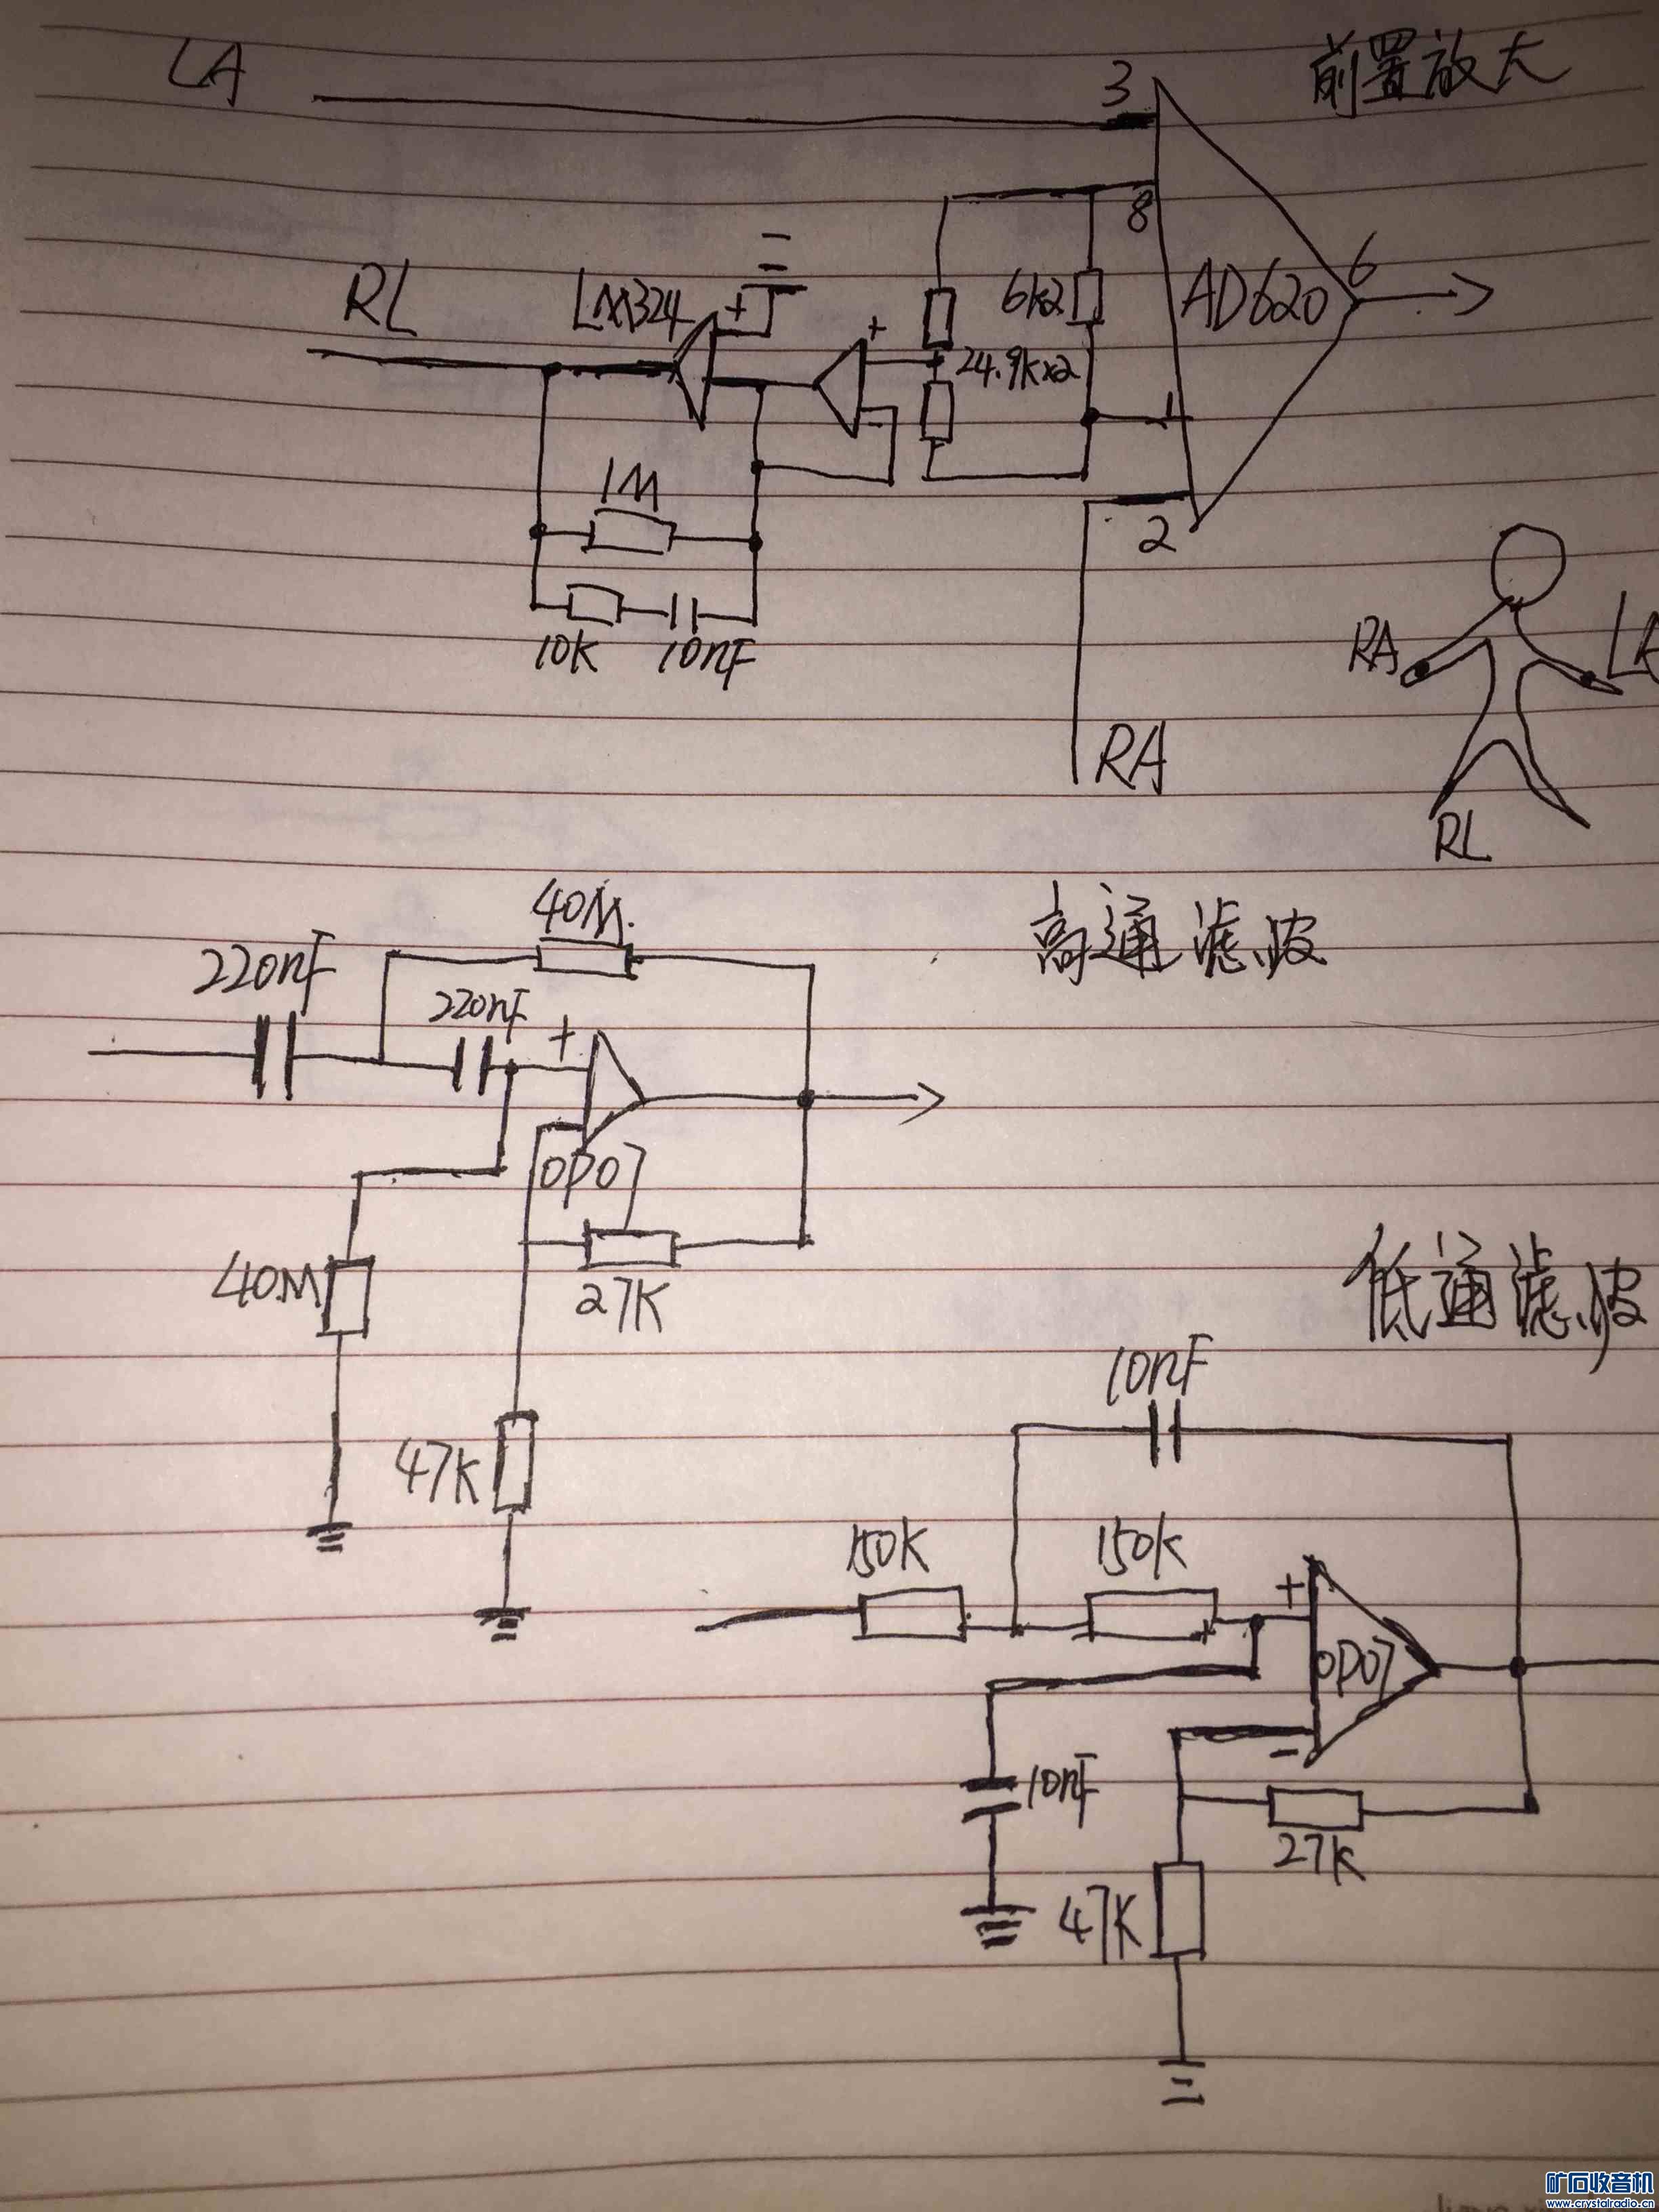 LA
3
前置放大
8
6
RL
LM324
+
+
6k2
AD620
24.9k×2
-
1
1M
2
10K
10nF
RA
RA
LA
RL
40M
高通滤波
220nF
220nF
+
OP07
40M
27K
低通滤波
10nF
47K
150K
150K
+
OP07
-
10nF
27K
47K
矿石收音机
www.crystalradio.cn